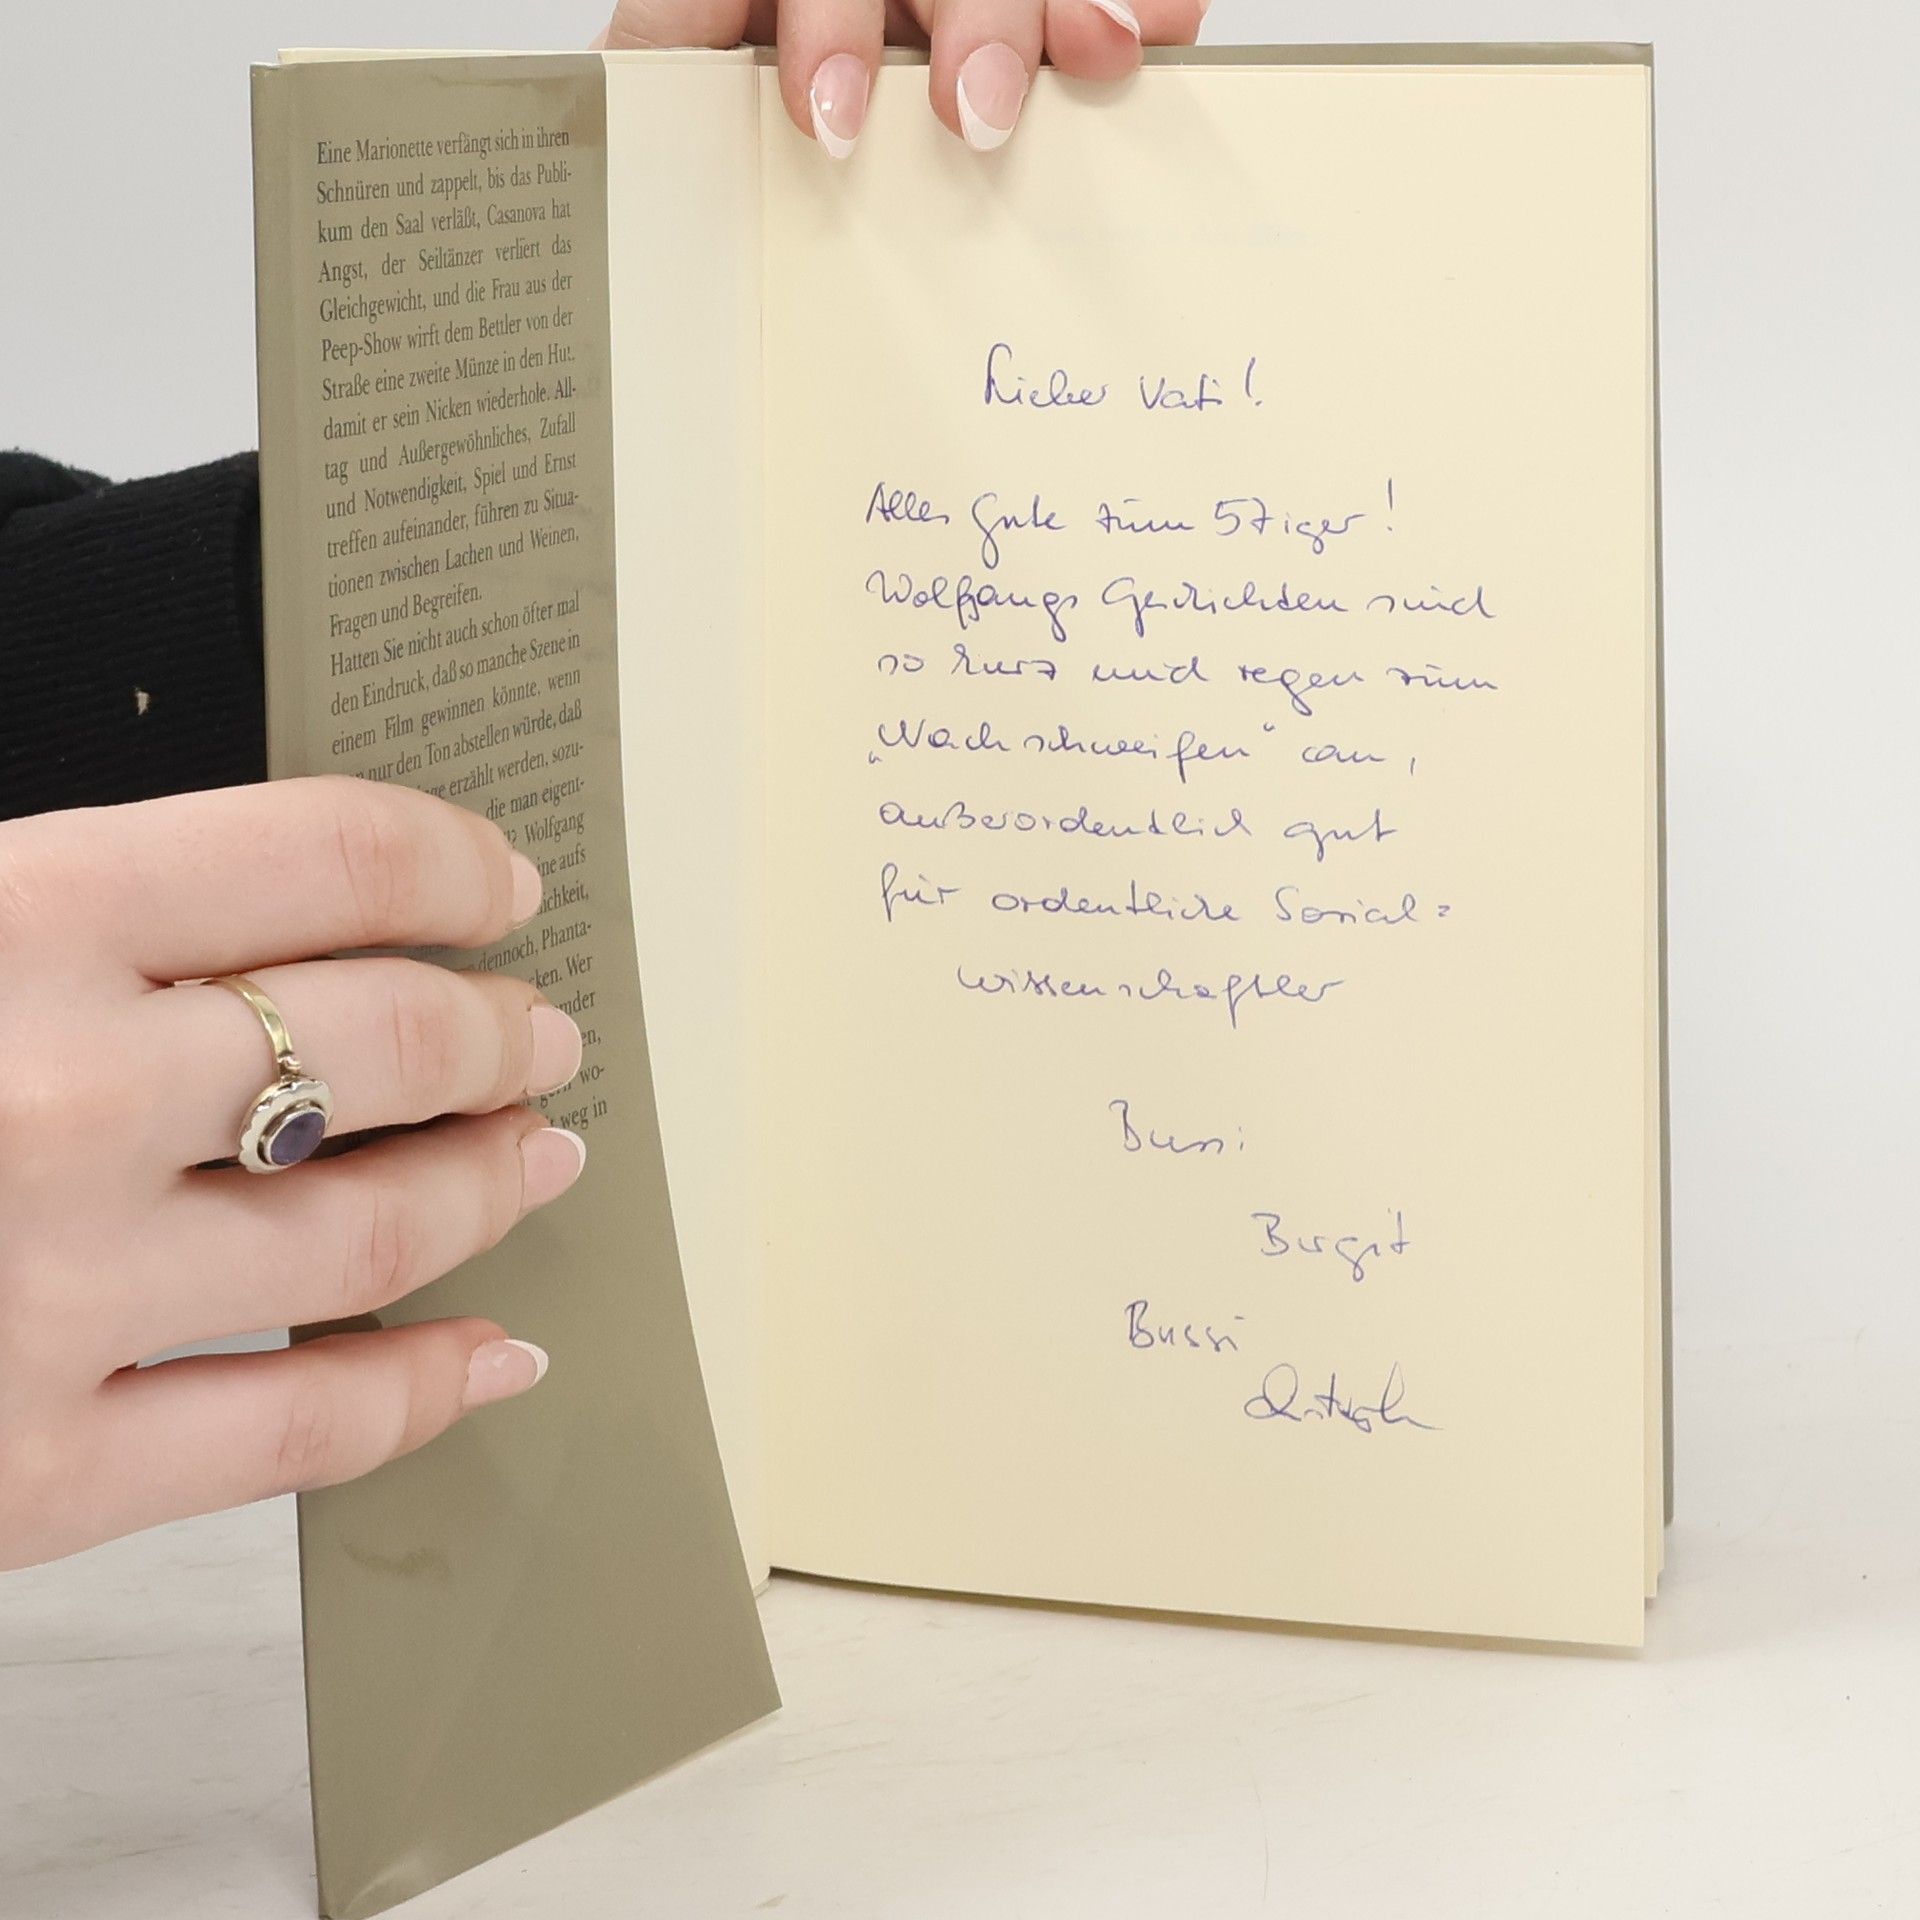 Eine Marionette verfängt sich in ihren
Schnüren und zappelt, bis das Publi-
kum den Saal verläßt, Casanova hat
Angst, der Seiltänzer verliert das
Gleichgewicht, und die Frau aus der
Peep-Show wirft dem Bettler von der
Straße eine zweite Münze in den Hut,
damit er sein Nicken wiederhole. All-
tag und Außergewöhnliches, Zufall
und Notwendigkeit, Spiel und Ernst
treffen aufeinander, führen zu Situa-
tionen zwischen Lachen und Weinen,
Fragen und Begreifen.
Hatten Sie nicht auch schon öfter mal
den Eindruck, daß so manche Szene in
einem Film gewinnen könnte, wenn
nur den Ton abstellen würde, daß
erzählt werden, sozu-
die man eigent-
Wolfgang
aufs
dennoch, Phanta-
Wer
wo-
weg in
Lieber Vati!
Alles Gute zum 57iger!
Wolfgangs Geschichten sind
so kurz und regen zum
„Nachschweifen" an,
außerordentlich gut
für ordentliche Sozial=
wissenschaftler
Bussi
Birgit
Bussi